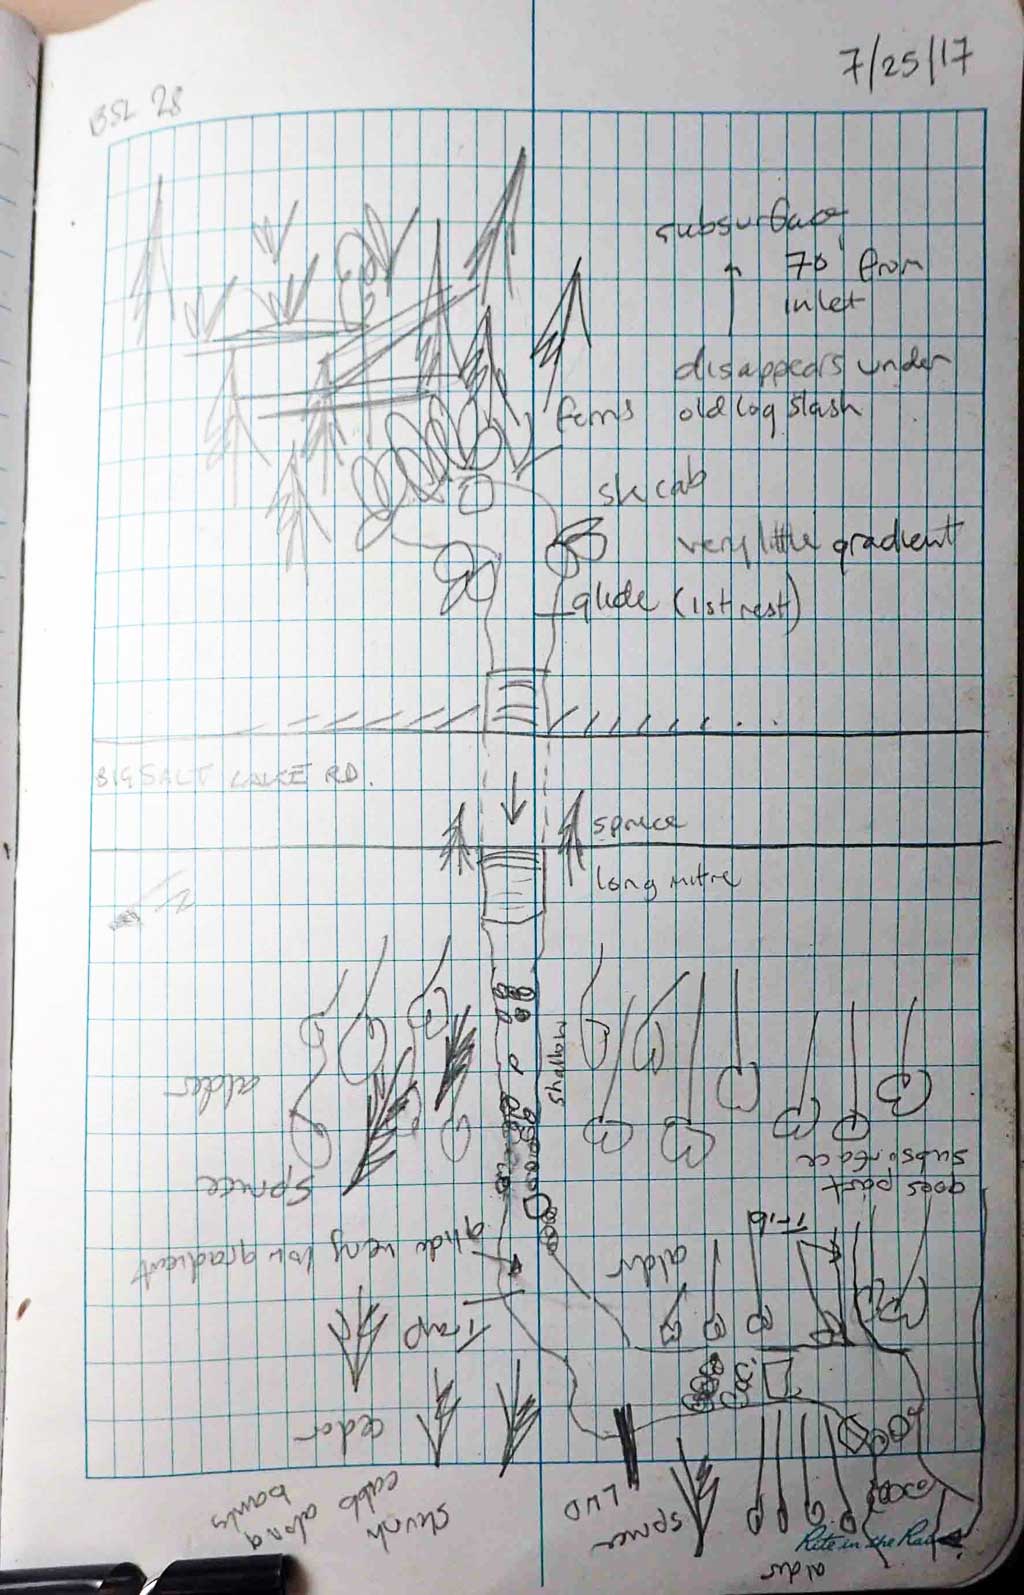 BSL 28
7/25/17
subsurface
70' from
inlet
disappears under
old log slash
ferns
sk cab
very little gradient
glide (1st rest)
BIG SALT LAKE RD.
spruce
long mitre
shallow
alder
spruce
goes past
subsurface
Trib
alder
glide very low gradient
Trap
cedar
skunk
cabb along
banks
LWD
spruce
alder
Rite in the Rain